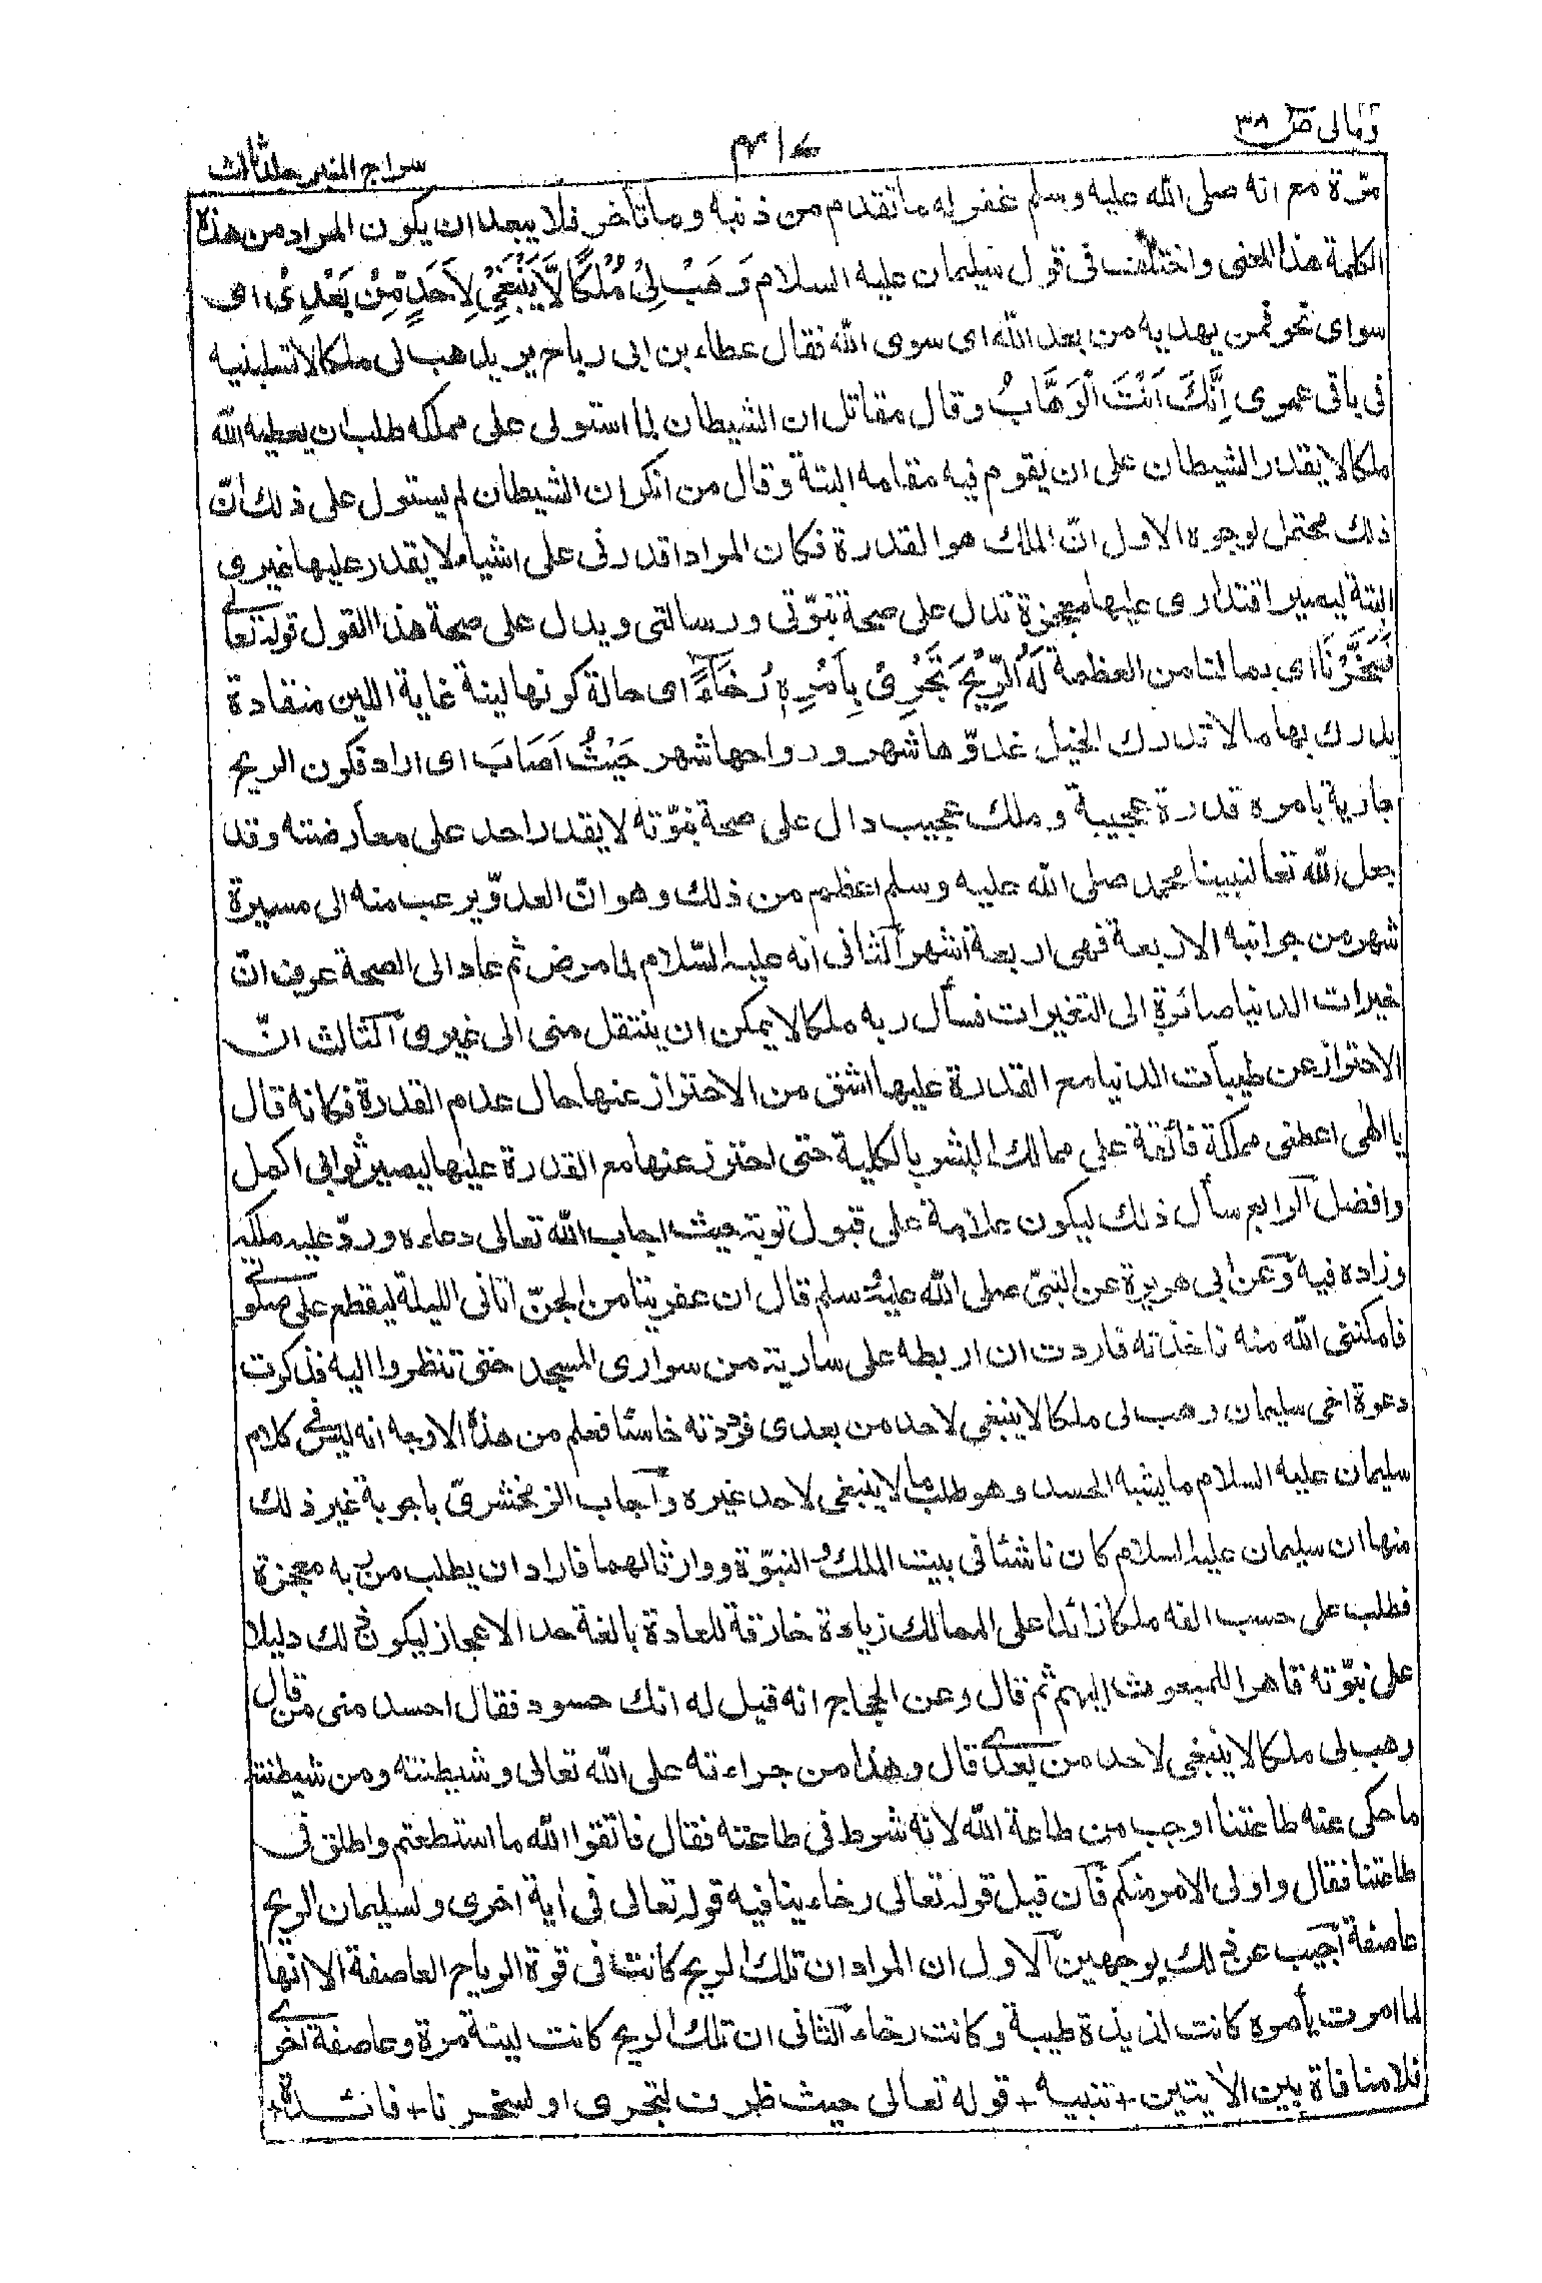 ومالی ص ٣٨
٤١٧
سراج المنیر جلد ثالث
مرّة مع انه صلی الله علیه وسلم غفر له ما تقدم من ذنبه وما تأخر فلا یبعد ان یکون المراد من هذه
الکلمة هذا المعنی واختلف فی قول سلیمان علیه السلام وَهَبْ لِیْ مُلْکًا لَّا یَنْۢبَغِیْ لِاَحَدٍ مِّنْۢ بَعْدِیْ ای
سوای نحو فمن یهدیه من بعد الله ای سوی الله فقال عطاء بن ابی رباح یرید هب لی ملکا لا تسلبنیه
فی باقی عمری اِنَّکَ اَنْتَ الْوَهَّابُ وقال مقاتل ان الشیطان لما استولی علی مملکه طلب ان یعطیه الله
ملکا لا یقدر الشیطان علی ان یقوم فیه مقامه البتة وقال من انکر ان الشیطان لم یستول علی ذلك انّ
ذلك محتمل لوجوه الاول انّ الملك هو القدرة فکان المراد اقدرنی علی اشیاء لا یقدر علیها غیری
البتة لیصیر اقتداری علیها معجزة تدل علی صحة نبوّتی ورسالتی ویدل علی صحة هذا القول قوله تعالٰی
فَسَخَّرْنَا ای بما لنا من العظمة لَهُ الرِّیْحَ تَجْرِیْ بِاَمْرِهٖ رُخَآءً ای حالة کونها لینة غایة اللین منقادة
یدرك بها ما لا تدرك الخیل غدوّها شهر ورواحها شهر حَیْثُ اَصَابَ ای اراد فکون الریح
جاریة بامره قدرة عجیبة وملك عجیب دال علی صحة نبوّته لا یقدر احد علی معارضته وقد
جعل الله تعا لنبینا محمد صلی الله علیه وسلم اعظم من ذلك وهو انّ العدوّ یرعب منه الی مسیرة
شهر من جوانبه الاربعة فهی اربعة اشهر الثانی انه علیه السّلام لما مرض ثم عاد الی الصحة عرف انّ
خیرات الدنیا صائرة الی التغیرات فسأل ربه ملکا لا یمکن ان ینتقل منی الی غیری الثالث انّ
الاحتراز عن طیبات الدنیا مع القدرة علیها اشق من الاحتراز عنها حال عدم القدرة فکانه قال
یا الٰهی اعطنی مملکة فائقة علی ممالك البشر بالکلیة حتی احترز عنها مع القدرة علیها لیصیر ثوابی اکمل
وافضل الرابع سأل ذلك لیکون علامة علی قبول توبته حیث اجاب الله تعالی دعاءه وردّ علیه ملکه
وزاده فیه وعن ابی هریرة عن النبیّ صلی الله علیه وسلم قال ان عفریتا من الجنّ اتانی اللیلة لیقطع علی صلوٰتی
فامکننی الله منه فاخذته فاردت ان اربطه علی ساریة من سواری المسجد حتی تنظروا الیه فذکرت
دعوة اخی سلیمان وهب لی ملکا لا ینبغی لاحد من بعدی فرددته خاسئا فعلم من هذه الاوجه انه لیس فی کلام
سلیمان علیه السلام ما یشبه الحسد وهو طلب ما لا ینبغی لاحد غیره واجاب الزمخشری باجوبة غیر ذلك
منها ان سلیمان علیه السلام کان ناشئا فی بیت الملك والنبوّة ووارثا لهما فاراد ان یطلب من ربه معجزة
فطلب علی حسب الفه ملکا زائدا علی الممالك زیادة خارقة للعادة بالغة حد الاعجاز لیکون ذلك دلیلا
علی نبوّته قاهرا للمبعوث الیهم ثم قال وعن الحجاج انه قیل له انك حسود فقال احسد منی من قال
وهب لی ملکا لا ینبغی لاحد من بعدی قال وهذا من جراءته علی الله تعالی وشیطنته ومن شیطنته
ما حکی عنه طاعتنا اوجب من طاعة الله لانه شرط فی طاعته فقال فاتقوا الله ما استطعتم واطلق فی
طاعتنا فقال واولی الامر منکم فان قیل قوله تعالی رخاء ینافیه قوله تعالی فی آیة اخری ولسلیمان الریح
عاصفة اجیب عن ذلك بوجهین الاول ان المراد ان تلك الریح کانت فی قوة الریاح العاصفة الا انها
لما امرت بأمره کانت لذیذة طیبة وکانت رخاء الثانی ان تلك الریح کانت لینة مرة وعاصفة اخرٰی
فلا منافاة بین الآیتین + تنبیه + قوله تعالی حیث ظرف لتجری او لسخرنا + فائدة +